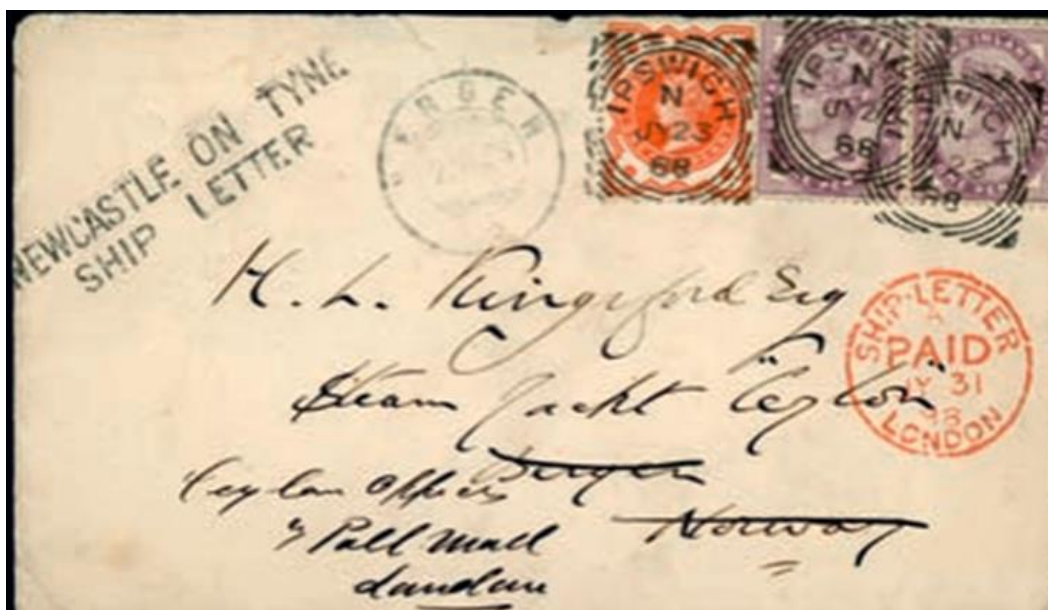 NEWCASTLE ON TYNE
SHIP LETTER
BERGEN
IPSWICH
N
JY 23
88
IPSWICH
N
JY 2
88
IPSWICH
N
23
88
H. L. Kingsford Esq
Steam Yacht "Ceylon"
Bergen
Norway
Ceylon Office
7 Pall Mall
London
SHIP-LETTER
PAID
JY 31
LONDON